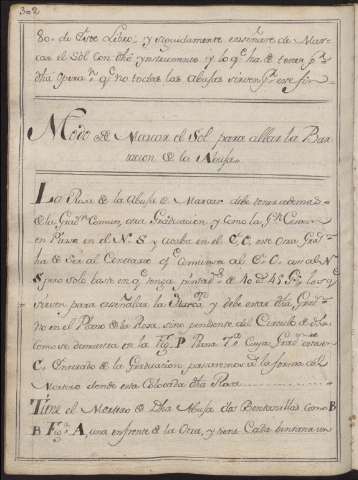 302
80. de Este Libro; y siguidamente enseñaré de Mar-
car el Sol con dho ynstrumento, y lo qe ha de tener pa
dha Opera.n qe no todas las Abujas sirven pa ese fin
Modo de Marcar el Sol para allar la Bar-
iacion de la Abuja
La Rosa de la Abuja de Marcar debe tener ademas
de la Grad.n Comun, otra Graduacion, y como la Gn Comun
en Piesa en el N. S y acaba en el E. O, este Otra Grad.n
ha de ser al Contrario qe Comiensa al E. O. con al N
S pero solo basta en qe tenga pintados de 40 a 45 Gs los qe
sirven para enseñalar la y debe estar dha Grad.n
No en el Plano de la Rosa, sino pendiente del Circulo de Ella
como se demuestra en la Fig.a P Plana Cuya Grad.n
C, Enterado de la Graduacion, pasaremos a la forma del
Mortero donde esta Colocada dha Rosa
Tiene el Mortero de Dha Abuja dos Bentanillas como B
B Fig.a A, una enfrente de la Otra, y tiene Cada bintana un